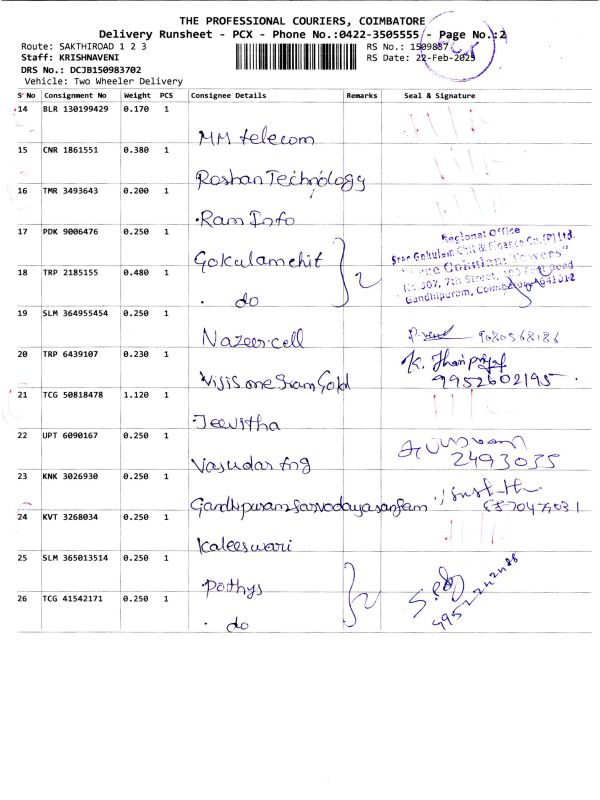 THE PROFESSIONAL COURIERS, COIMBATORE
Delivery Runsheet - PCX - Phone No.:0422-3505555 - Page No.:2
Route: SAKTHIROAD 1 2 3
RS No.: 1509837
Staff: KRISHNAVENI
RS Date: 22-Feb-2025
DRS No.: DCJB150983702
Vehicle: Two Wheeler Delivery
S No Consignment No Weight PCS Consignee Details Remarks Seal & Signature
14 BLR 130199429 0.170 1
MM telecom
15 CNR 1861551 0.380 1
Roshan Technology
16 TMR 3493643 0.200 1
Ram Info
17 PDK 9006476 0.250 1
Gokulam chit
Regional Office
Sree Gokulam Chit & Finance Co.(P) Ltd.
"Sree Gokulam Towers"
No.307, 7th Street, 100 Feet Road
Gandhipuram, Coimbatore-641012
18 TRP 2185155 0.480 1
do
2
19 SLM 364955454 0.250 1
Nazeer cell
9080568186
20 TRP 6439107 0.230 1
Vijis one gram Gold
K.
9952602195
21 TCG 50818478 1.120 1
Jeevitha
22 UPT 6090167 0.250 1
Vasudar Eng
2493035
23 KNK 3026930 0.250 1
Gandhipuram Sarvodaya sangam
24 KVT 3268034 0.250 1
Kaleeswari
25 SLM 365013514 0.250 1
Pothys
26 TCG 41542171 0.250 1
do
2